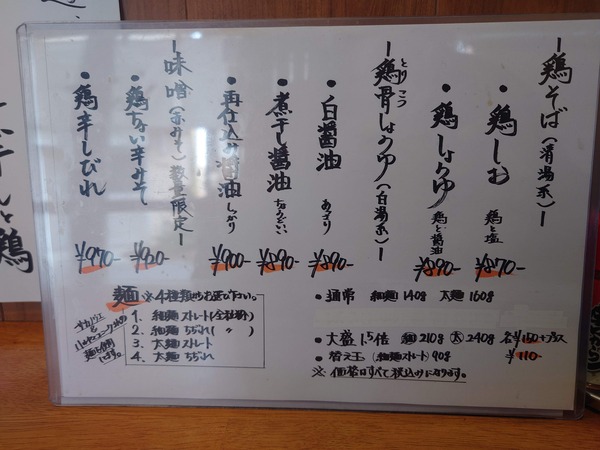 ー鶏そば(清湯系)ー
・鶏しお 鶏と塩 ¥870-
・鶏しょうゆ 鶏と醤油 ¥890-
ー鶏骨しょうゆ(白湯系)ー
とりこつ
・白醤油 あっさり ¥890-
・煮干し醤油 ¥890-
・再仕込み醤油 しっかり ¥900-
ー味噌(赤みそ)数量限定ー
・鶏ちない辛みそ ¥960-
・鶏辛しびれ ¥970-
麺 ※4種類からお選び下さい。
1. 細麺ストレート(全粒粉入)
2. 細麺ちぢれ( 〃 )
3. 太麺ストレート
4. 太麺ちぢれ
・通常 細麺140g 太麺160g
・大盛 1.5倍 細210g 太240g 各¥150プラス
・替え玉(細麺ストレート)90g ¥110-
※価格はすべて税込みになります。
鶏